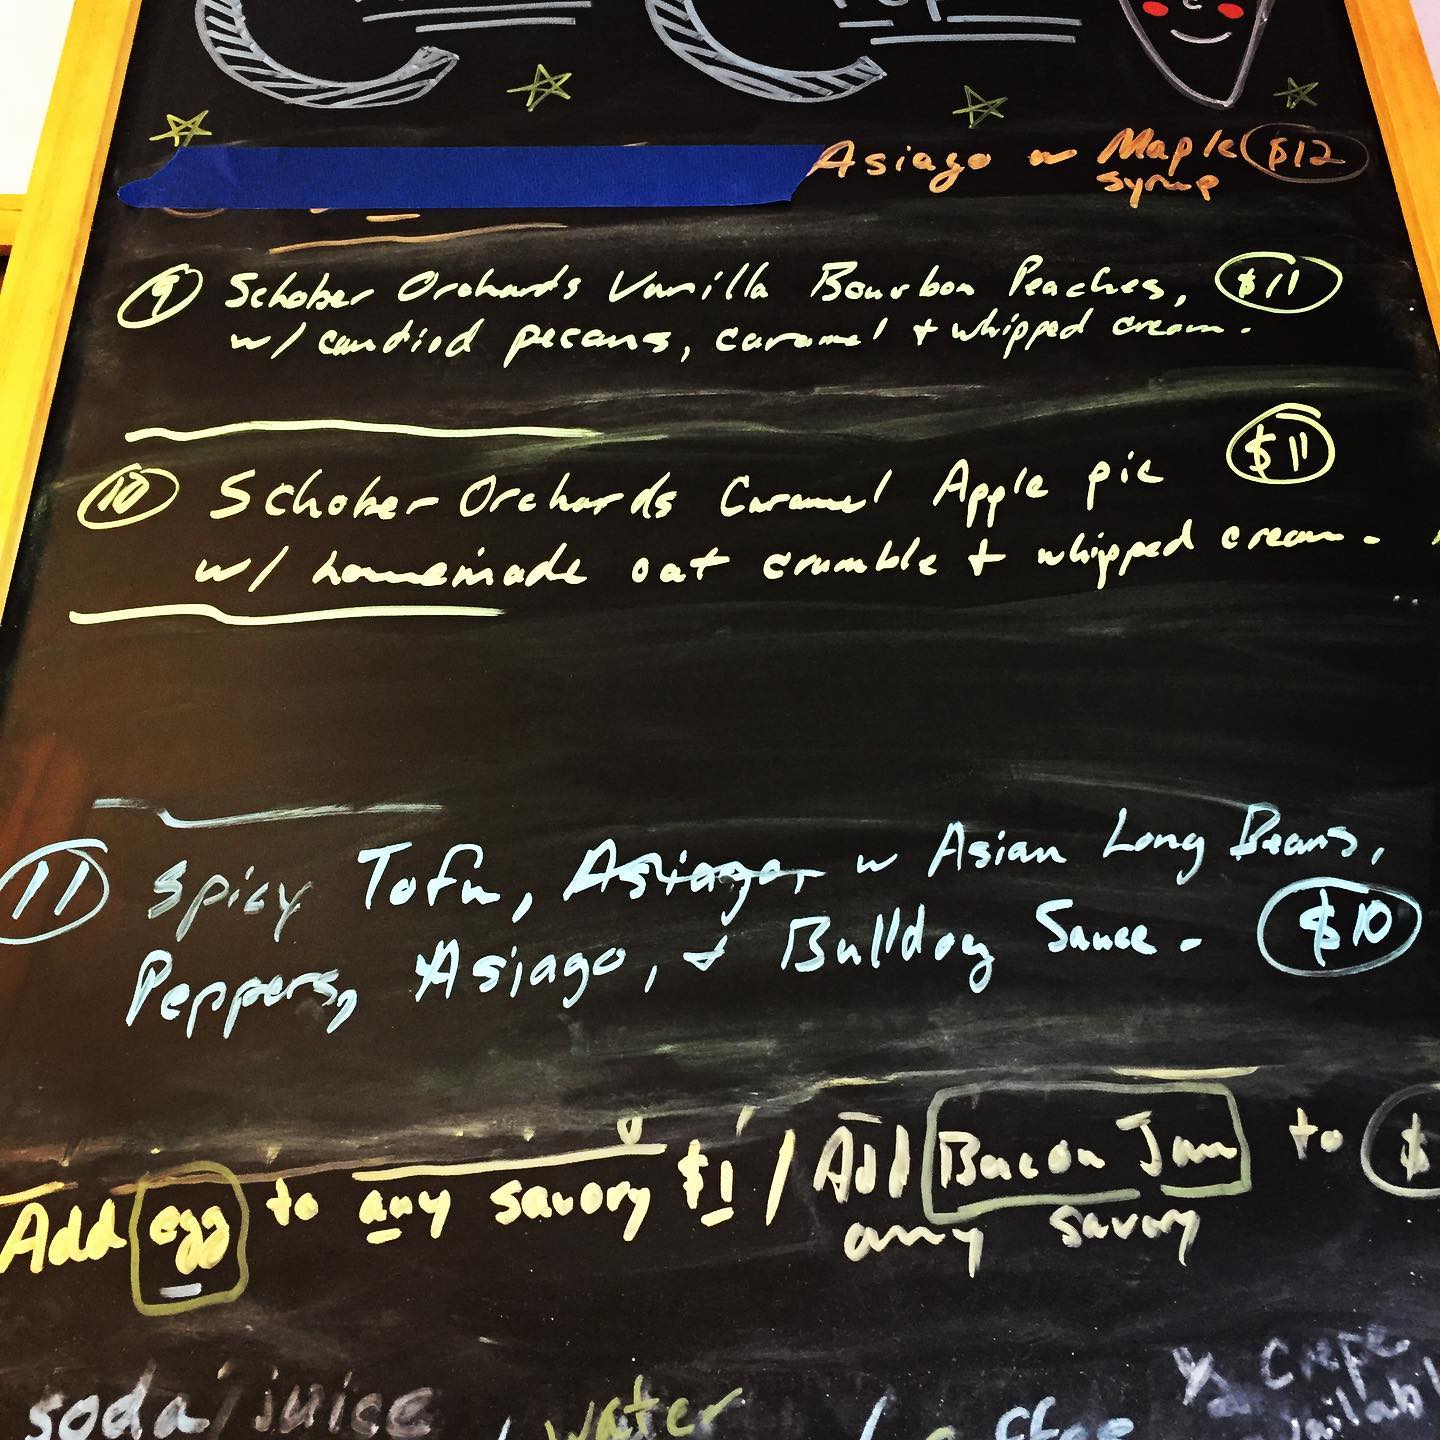 Asiago w Maple $12
syrup
9 Schober Orchards Vanilla Bourbon Peaches, $11
w/ candied pecans, caramel + whipped cream.
10 Schober Orchards Caramel Apple pie $11
w/ homemade oat crumble + whipped cream.
11 Spicy Tofu, Asiago, w Asian Long Beans,
Peppers, Asiago, + Bulldog Sauce. $10
Add egg to any savory $1 / Add Bacon Jam to $
any savory
soda/juice / water / coffee
1/2 Crepe